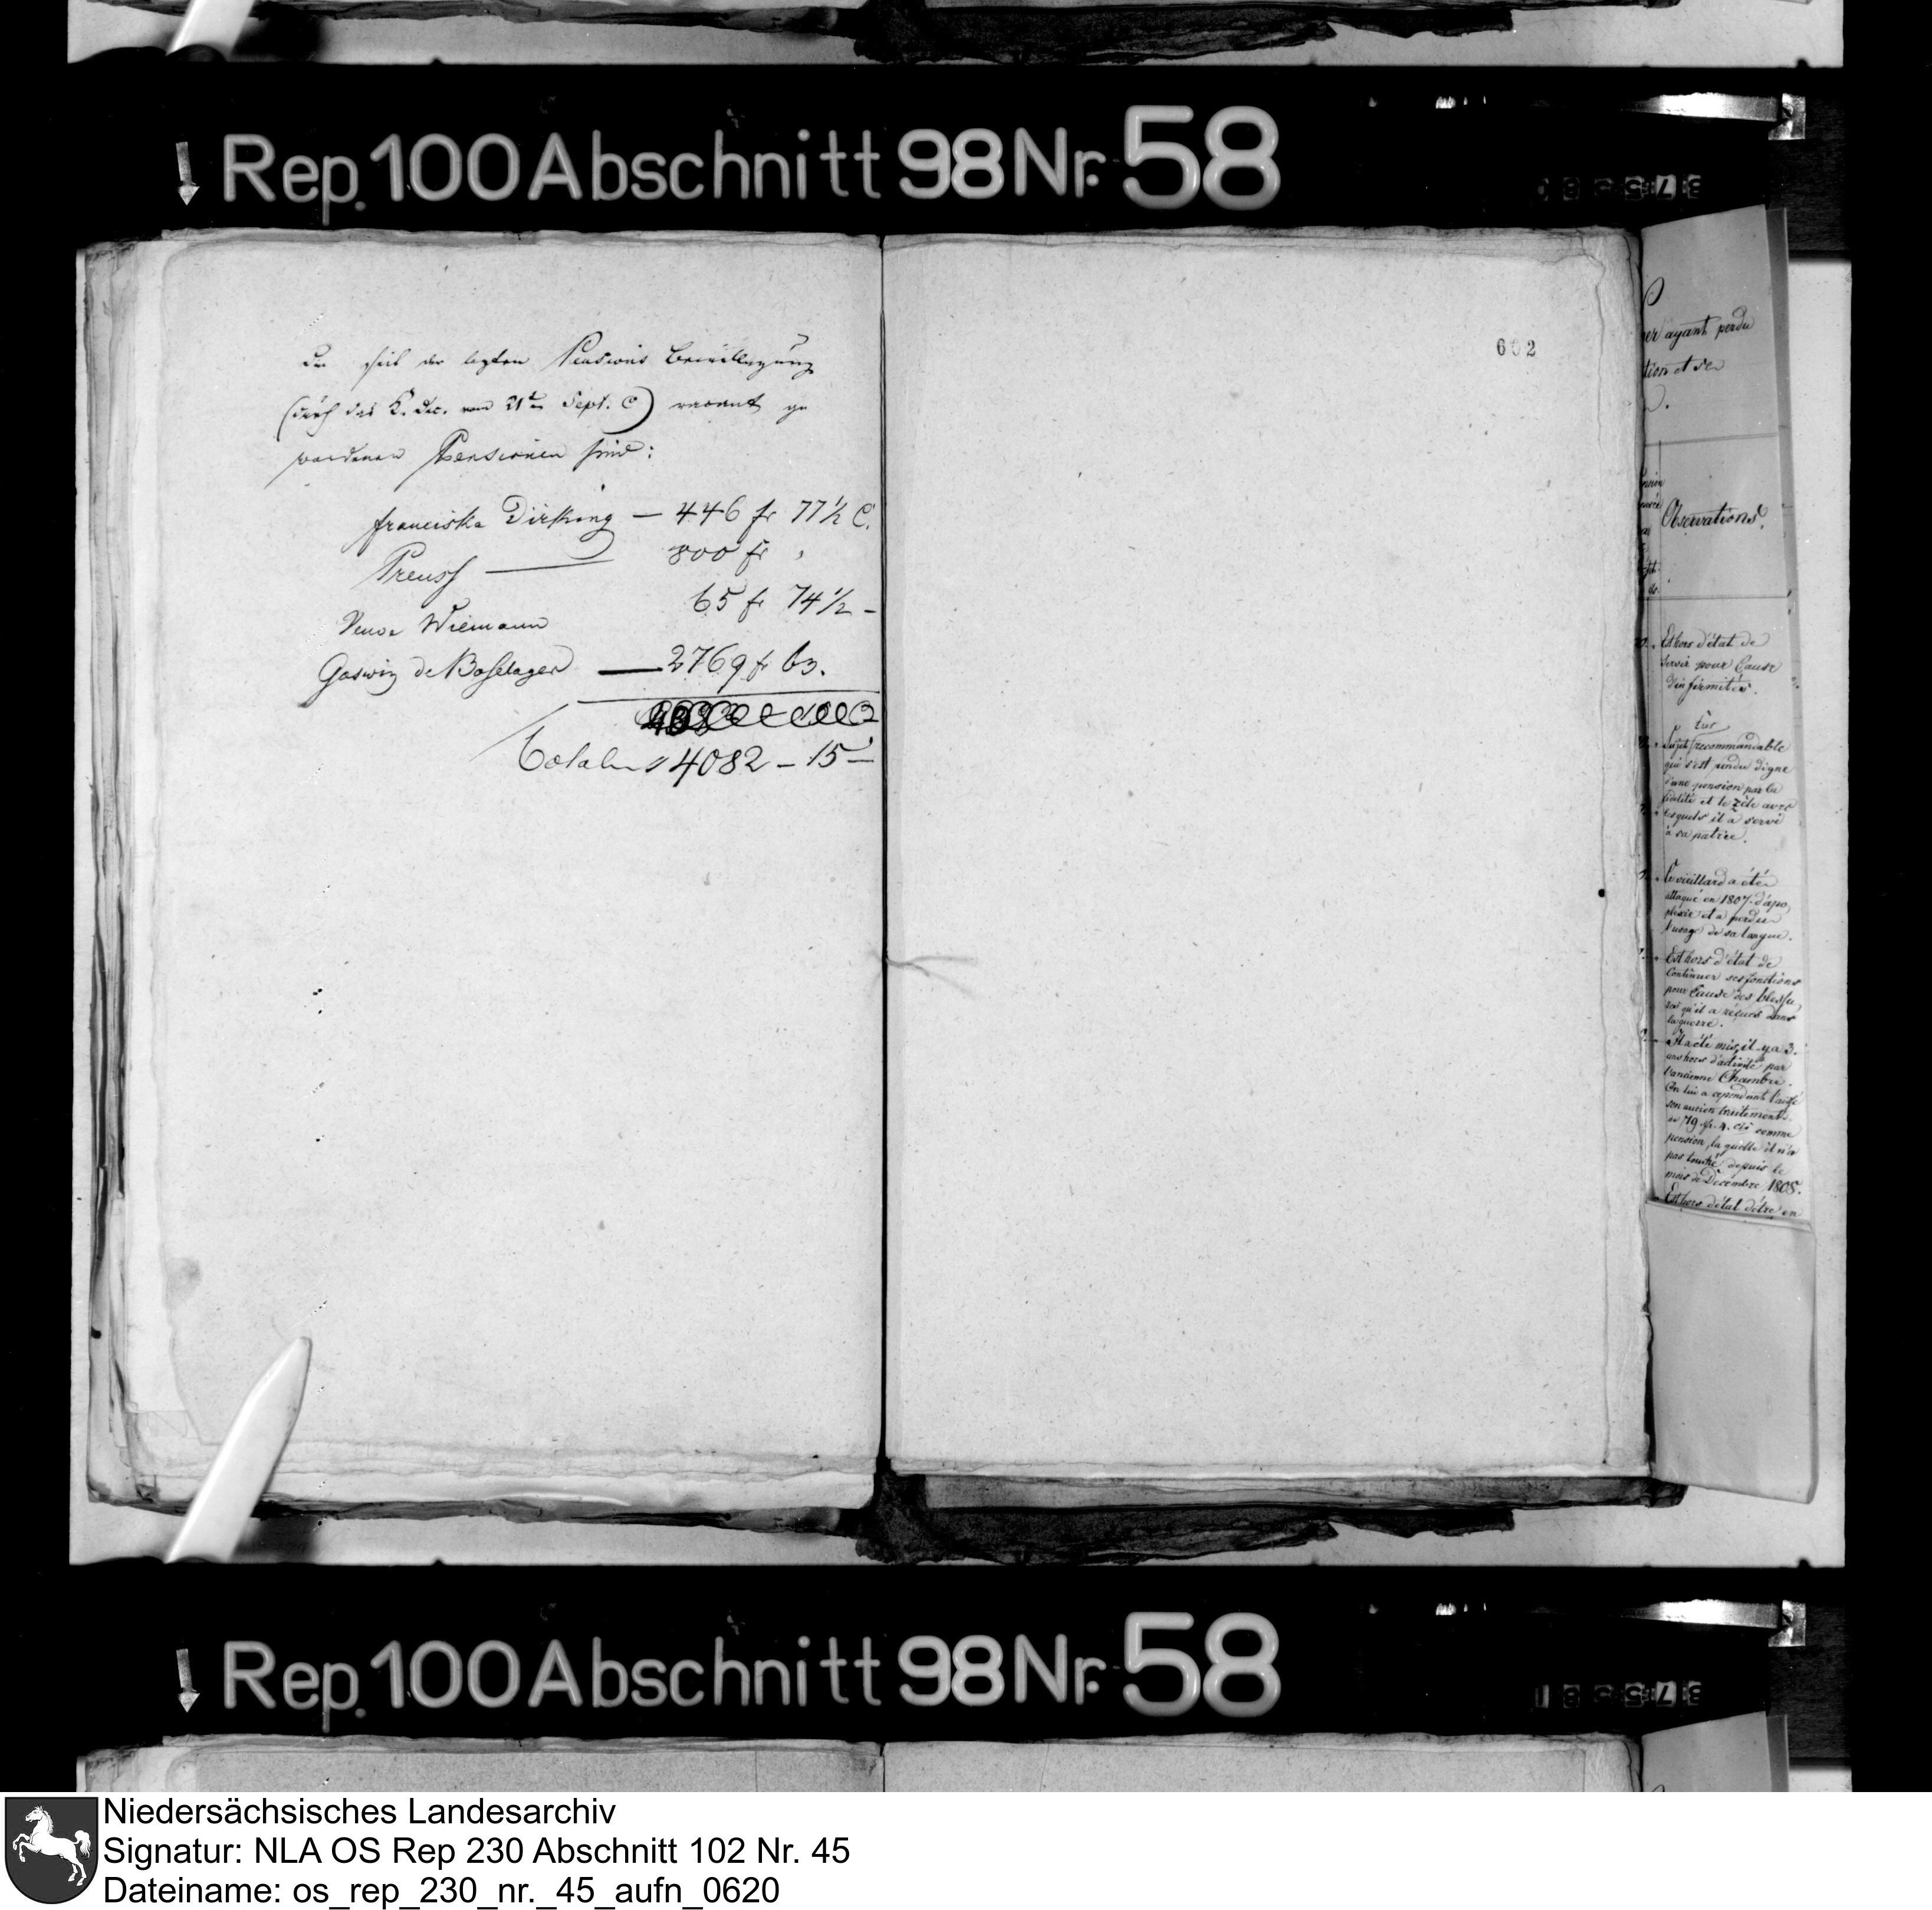 Rep. 100 Abschnitt 98 Nr. 58
Die seit der lezten Pensions Bewilligung
(durch das K. Dec. vom 21ten Sept. C) vacant ge
wordenen Pensionen sind:
franciska Dirking — 446 fr 77½ C.
Preuss — 800 fr ,
Veuve Wiemann 65 fr 74½ –
Goswin de Boselager — 2769 fr 63.
4082 – 15 –
602
ayant perdu
Observations.
Est hors d'état de
servir pour Cause
d'infirmités.
très
Sujet recommandable
qui s'est rendu digne
d'une pension par la
fidélité et le zèle avec
lesquels il a servi
à sa patrie.
Ce vieillard a été
attaqué en 1807 d'apo
plexie et a perdu
l'usage de sa langue.
Est hors d'état de
Continuer ses fonctions
pour Cause des blessu
res qu'il a réçues dans
la guerre.
Il a été mis, il y a 3.
ans hors d'activité par
l'ancienne Chambre.
On lui a cependant laissé
son ancien traitement
de 719. fr. 4. cs comme
pension, la quelle il n'a
pas touché depuis le
mois de Décembre 1808.
Est hors d'état d'être en
Rep. 100 Abschnitt 98 Nr. 58
Niedersächsisches Landesarchiv
Signatur: NLA OS Rep 230 Abschnitt 102 Nr. 45
Dateiname: os_rep_230_nr._45_aufn_0620